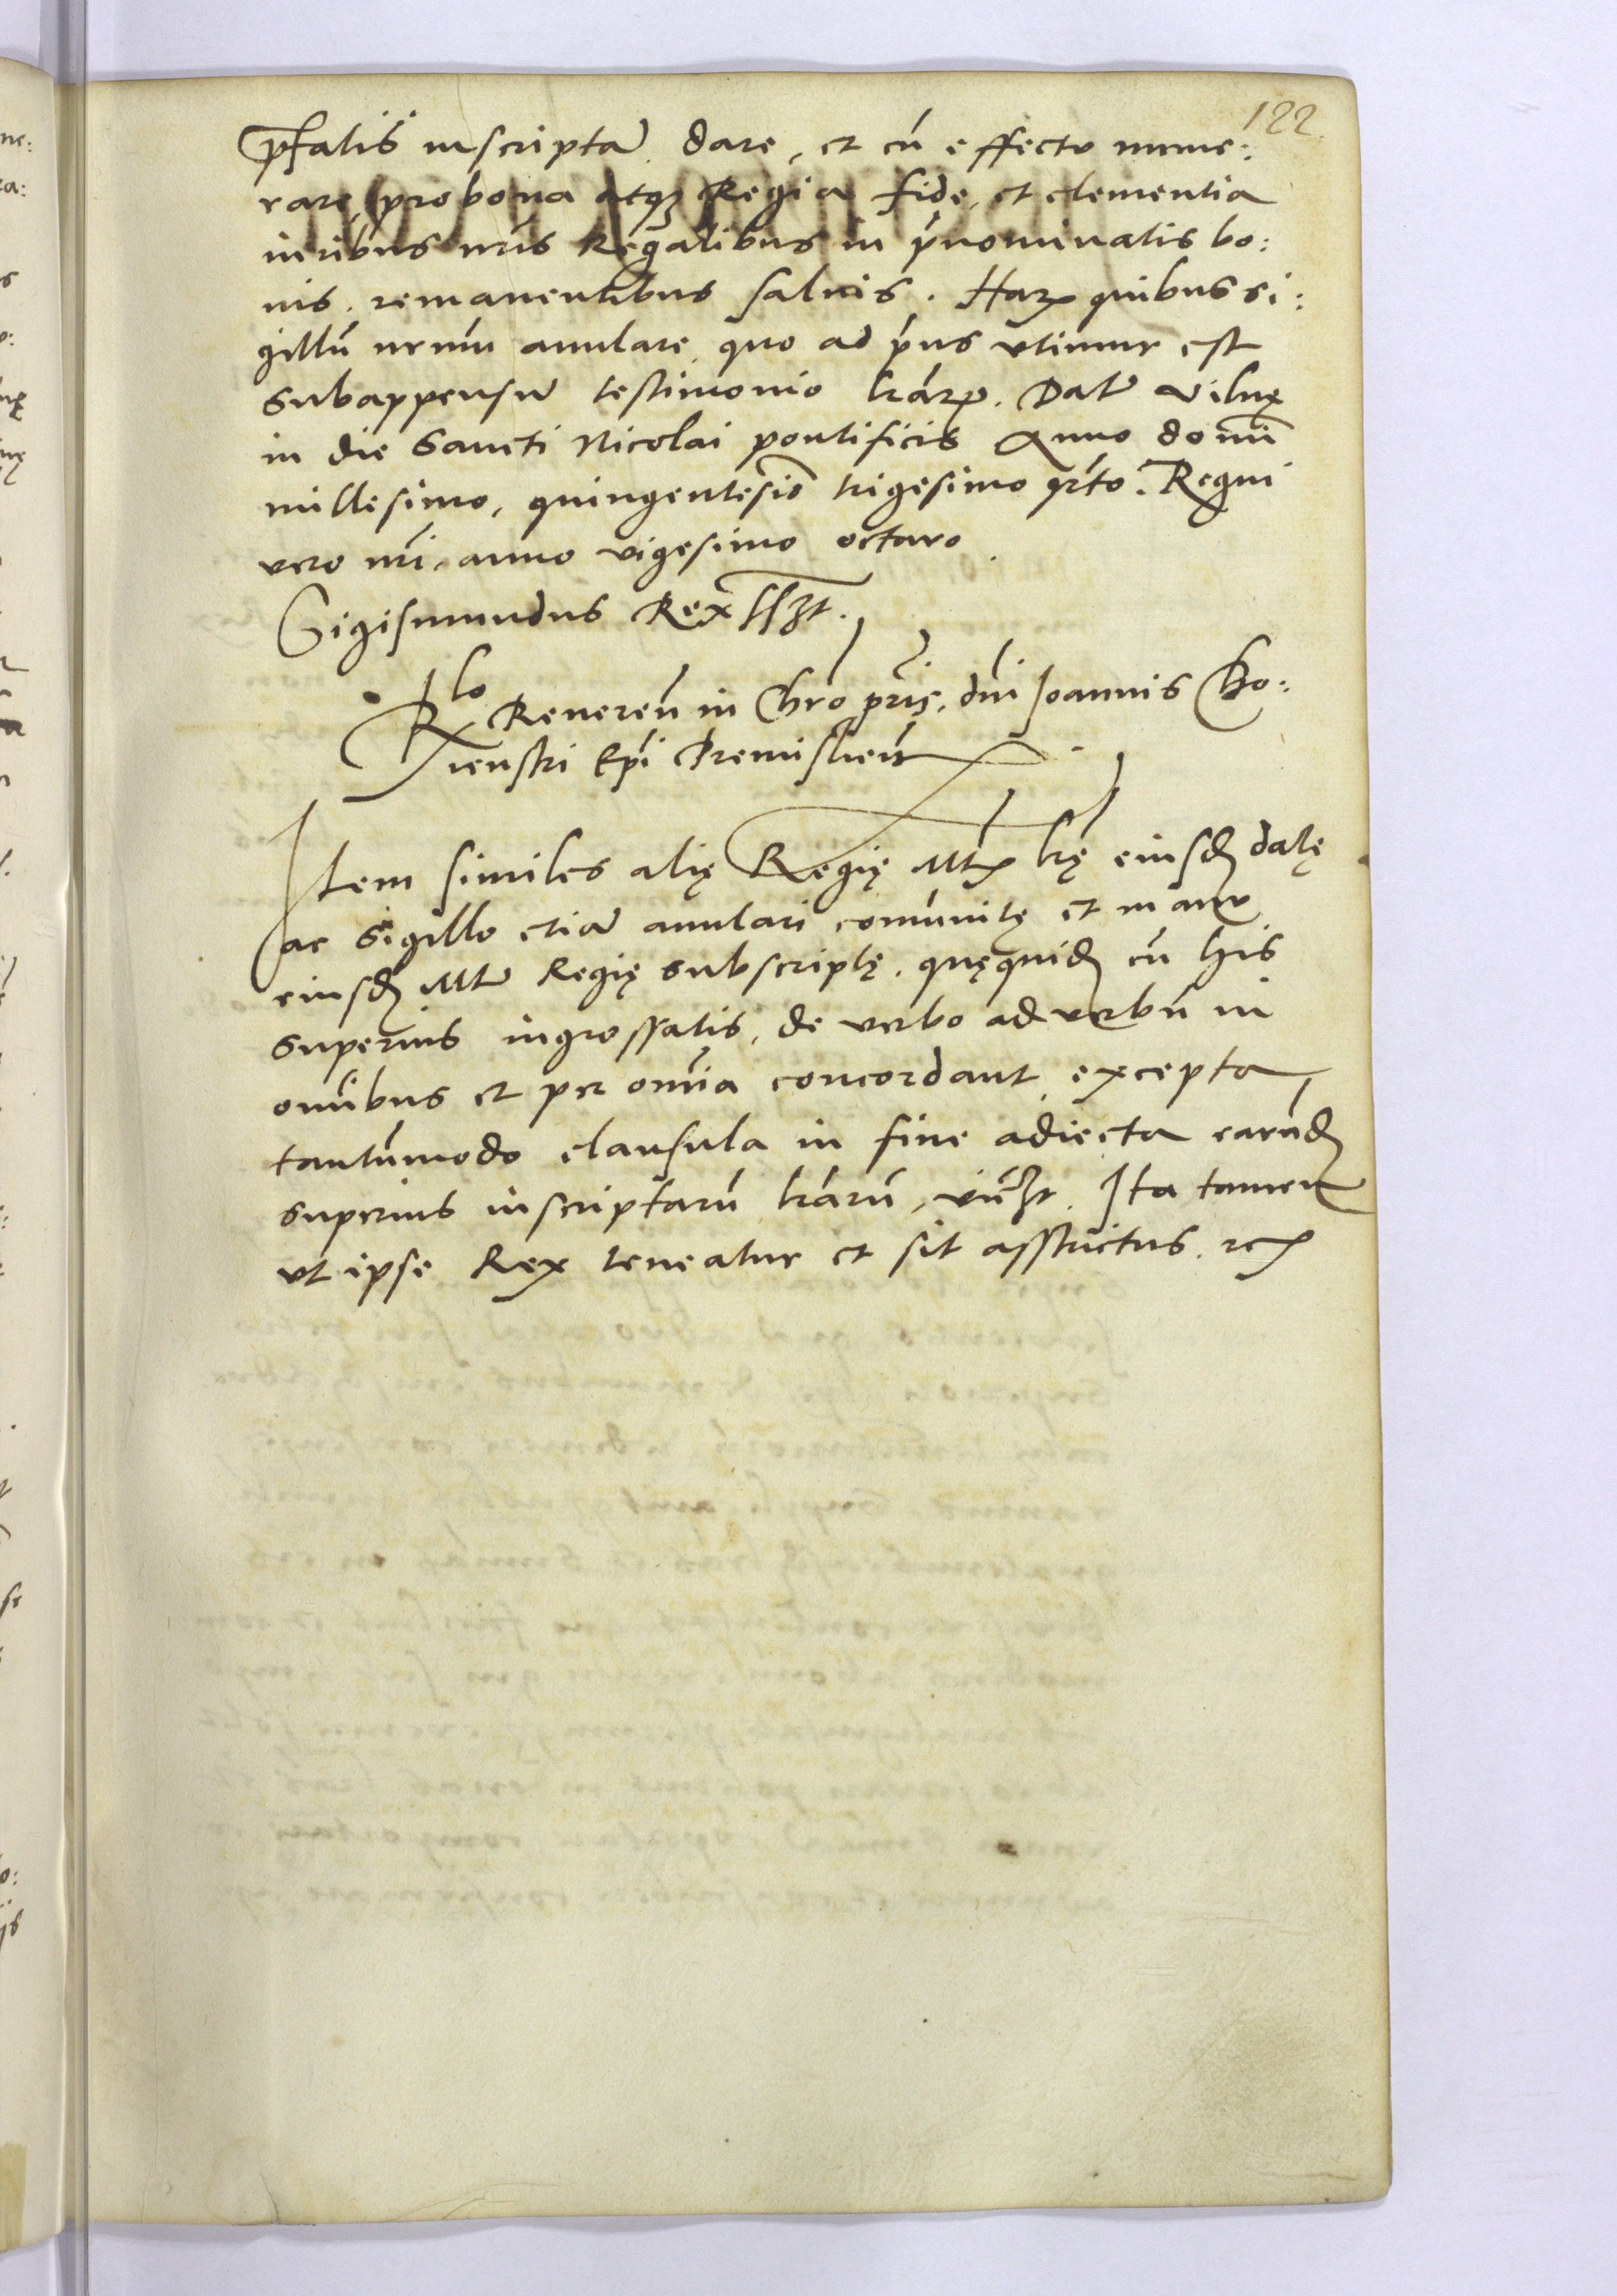 122
pfatis inscripta dare, et cū effectu nume:
rare, pro bona atq₃ Regia fide, et clementia
iuribus nr̄is Regalibus in p̄nominatis bo:
nis. remanentibus saluis. Harꝝ quibus si:
gillū nrm̄ anulare, quo ad p̄ns vtimur est
subappensū testimonio lrārꝝ. Datū Vilnę
in die Sancti Nicolai pontificis Anno domī
millesimo, quingentesiō trigesimo qrto. Regni
vero nr̄i, anno vigesimo octavo
Sigismundus Rex sszt.
Rlo Reueren̄ in Chro prīs, dn̄i Joannis Cho:
ienski Epī Premislien̄
Item similes alię Regię Mtꝭ lrę eiusd₃ datę
ac sigillo etiā anulari comūnitę et manu
eiusd₃ Mtꝭ Regię subscriptę, quęquid₃ cū his
superius ingrossatis, de verbo ad verbū in
omībus et per omīa concordant, excepta
tantūmodo clausula in fine adiecta earūd₃
superius inscriptarū lrārū, vīdzt. Ita tamen
vt ipse Rex teneatur et sit asstrictus. ꝛcꝭ